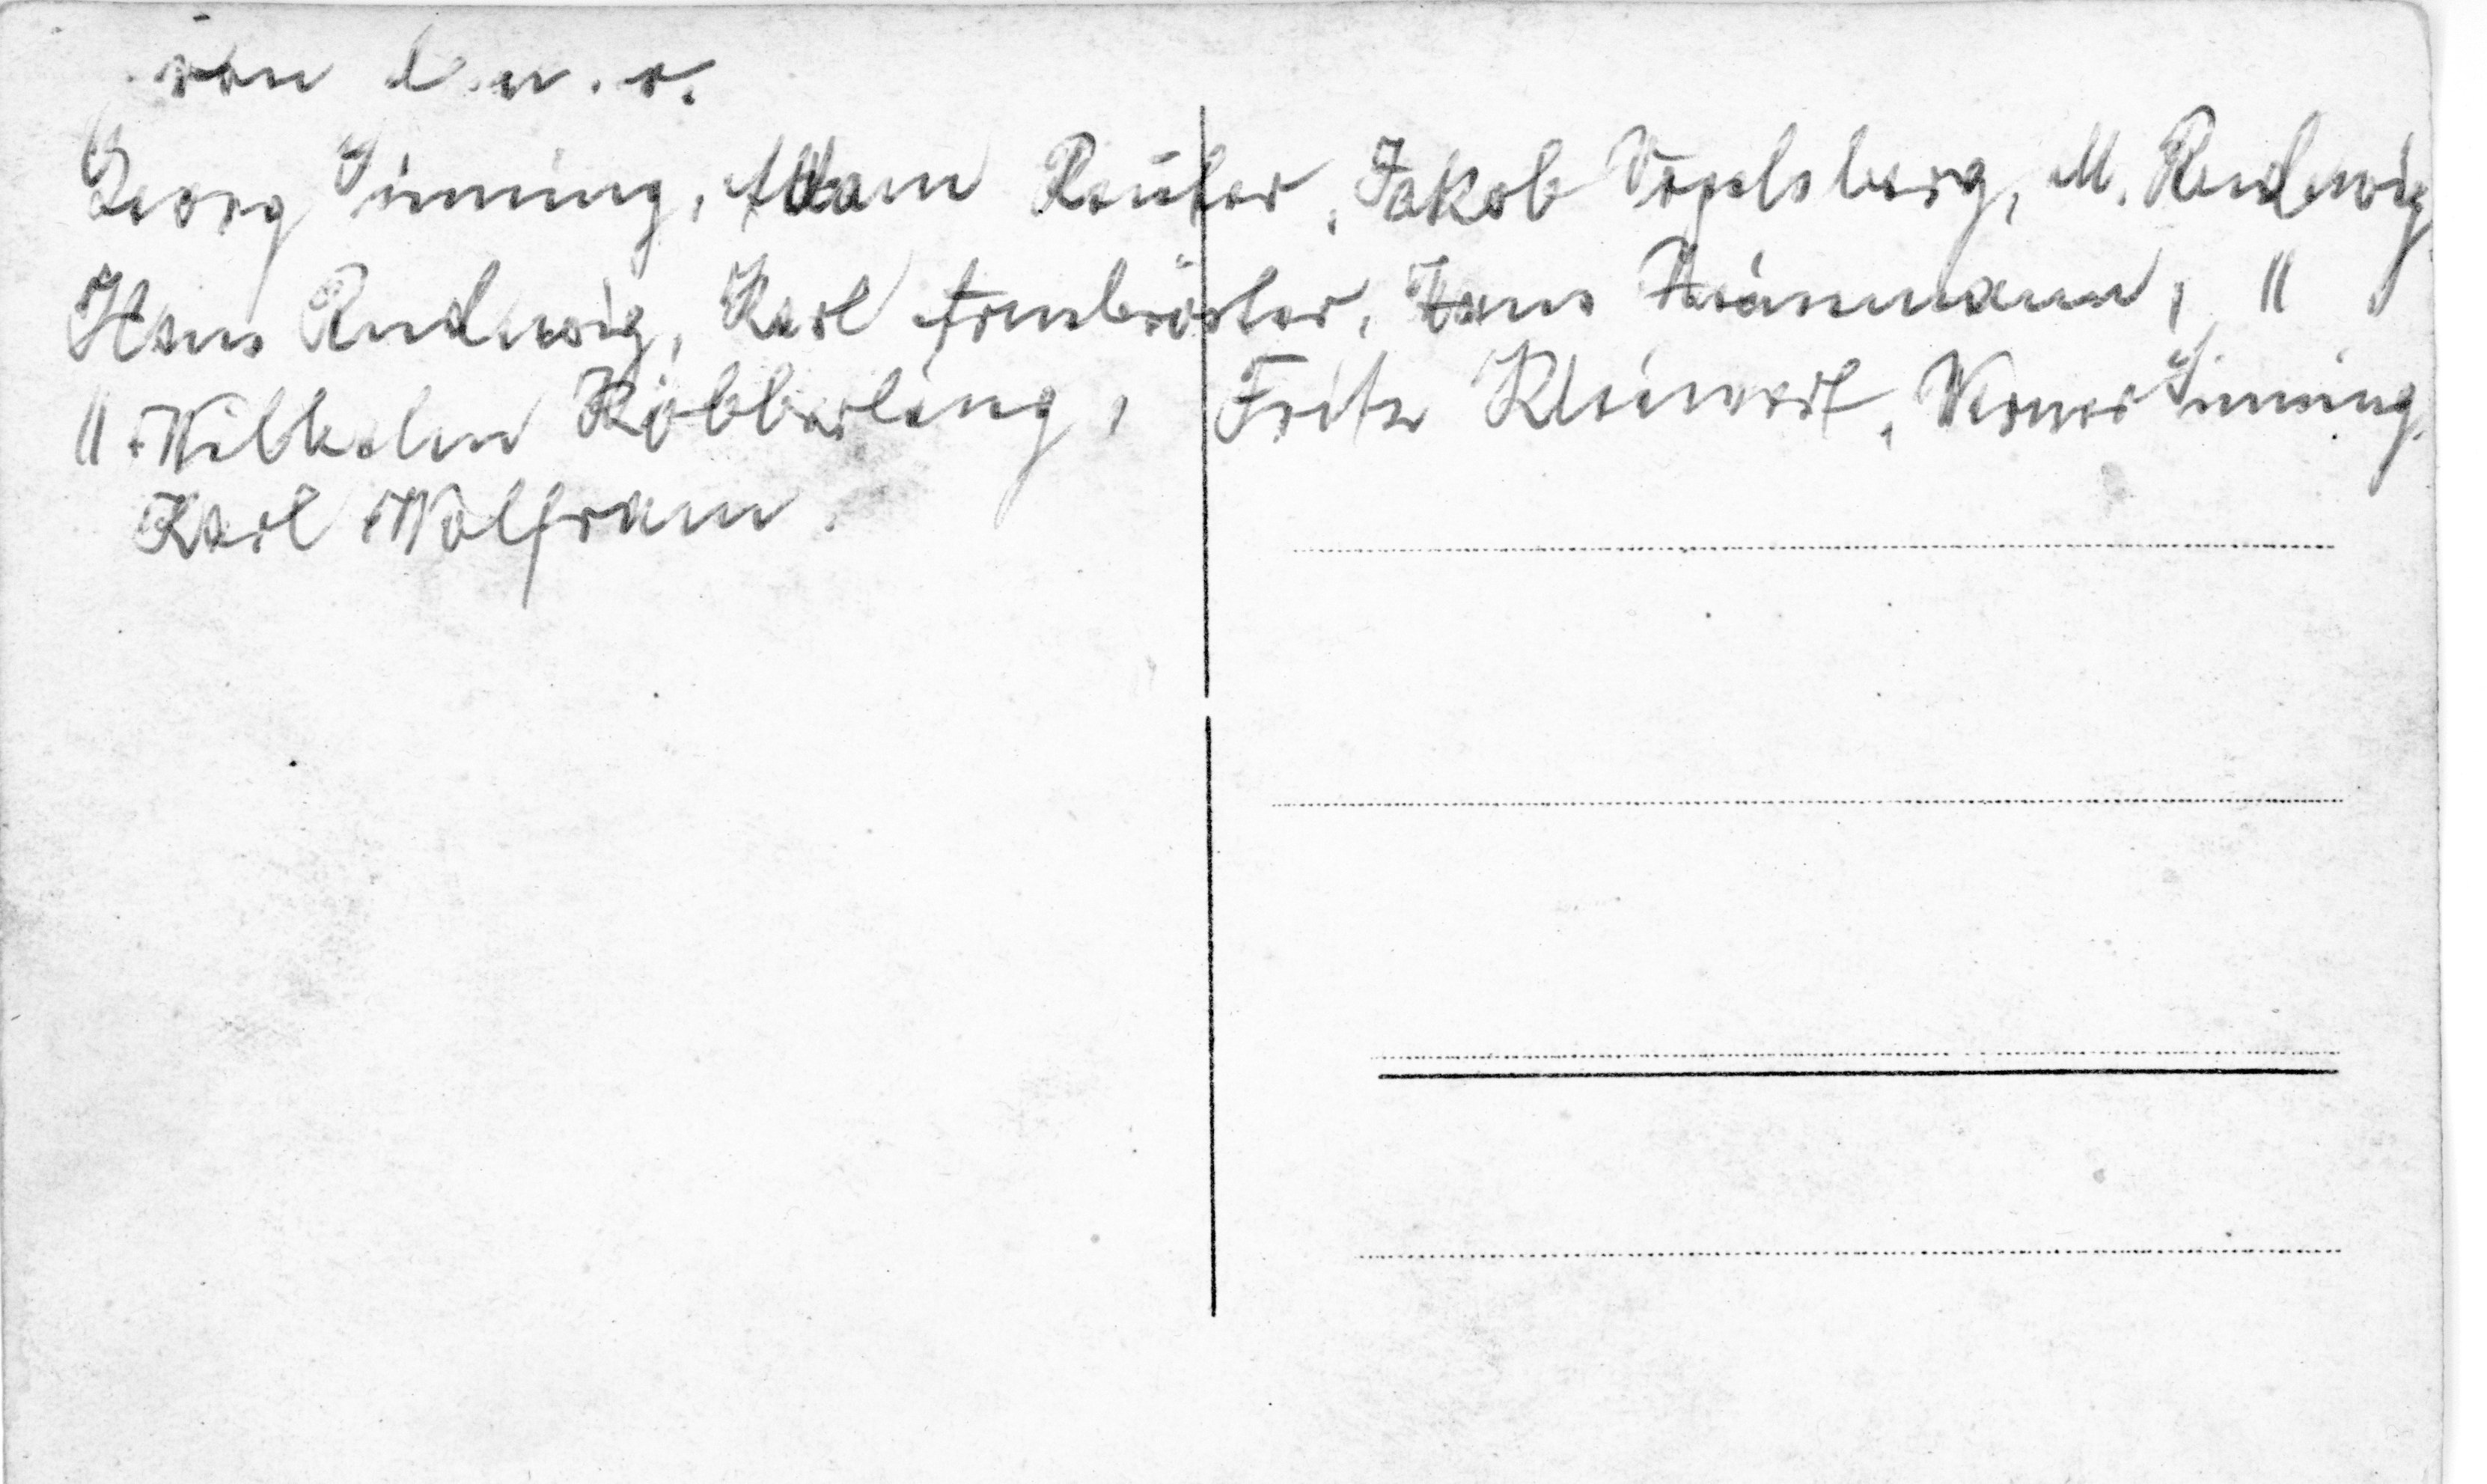 von l. n. r.
Georg Sinning, Adam Reuter, Jakob Vogelsberg, M. Rudewig
Hans Rudewig, Karl Armbröster, Hans, "
" Wilhelm Köbberling, Fritz Kleinert, Werner Sinning,
Karl Wolfram.